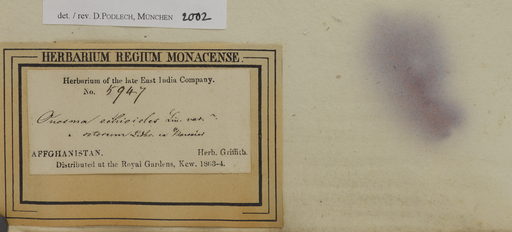 det. / rev. D.PODLECH, MÜNCHEN 2002
HERBARIUM REGIUM MONACENSE.
Herbarium of the late East India Company.
No. 5947
Onosma echioides Lin. var.
AFFGHANISTAN. Herb. Griffith.
Distributed at the Royal Gardens, Kew, 1863-4.